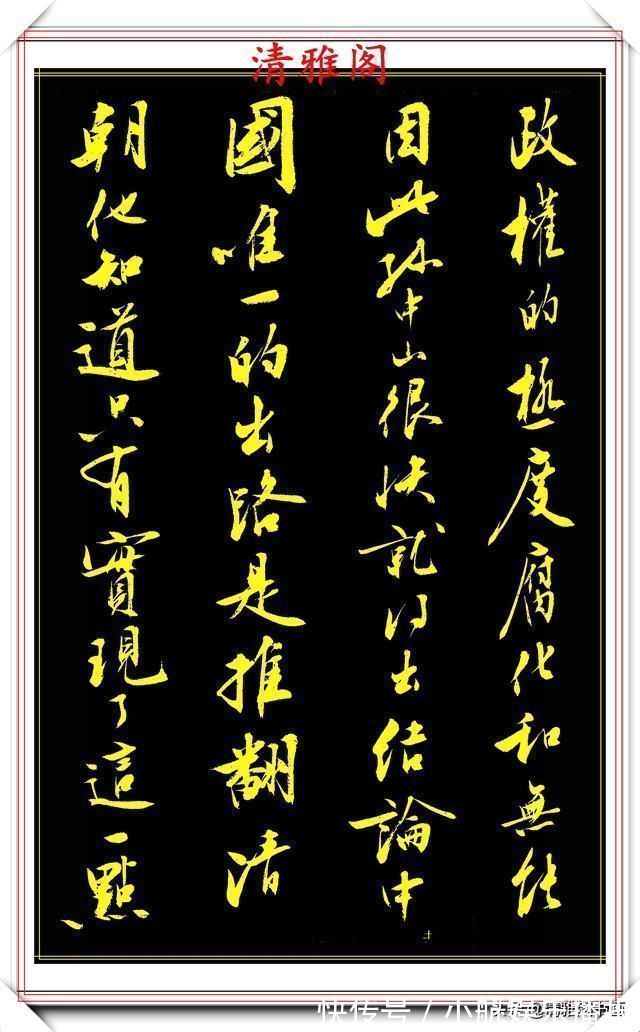 清雅阁
政權的極度腐化和無能
因此孫中山很快就得出結論中
國唯一的出路是推翻清
朝他知道只有實現了這一點
快传号/小